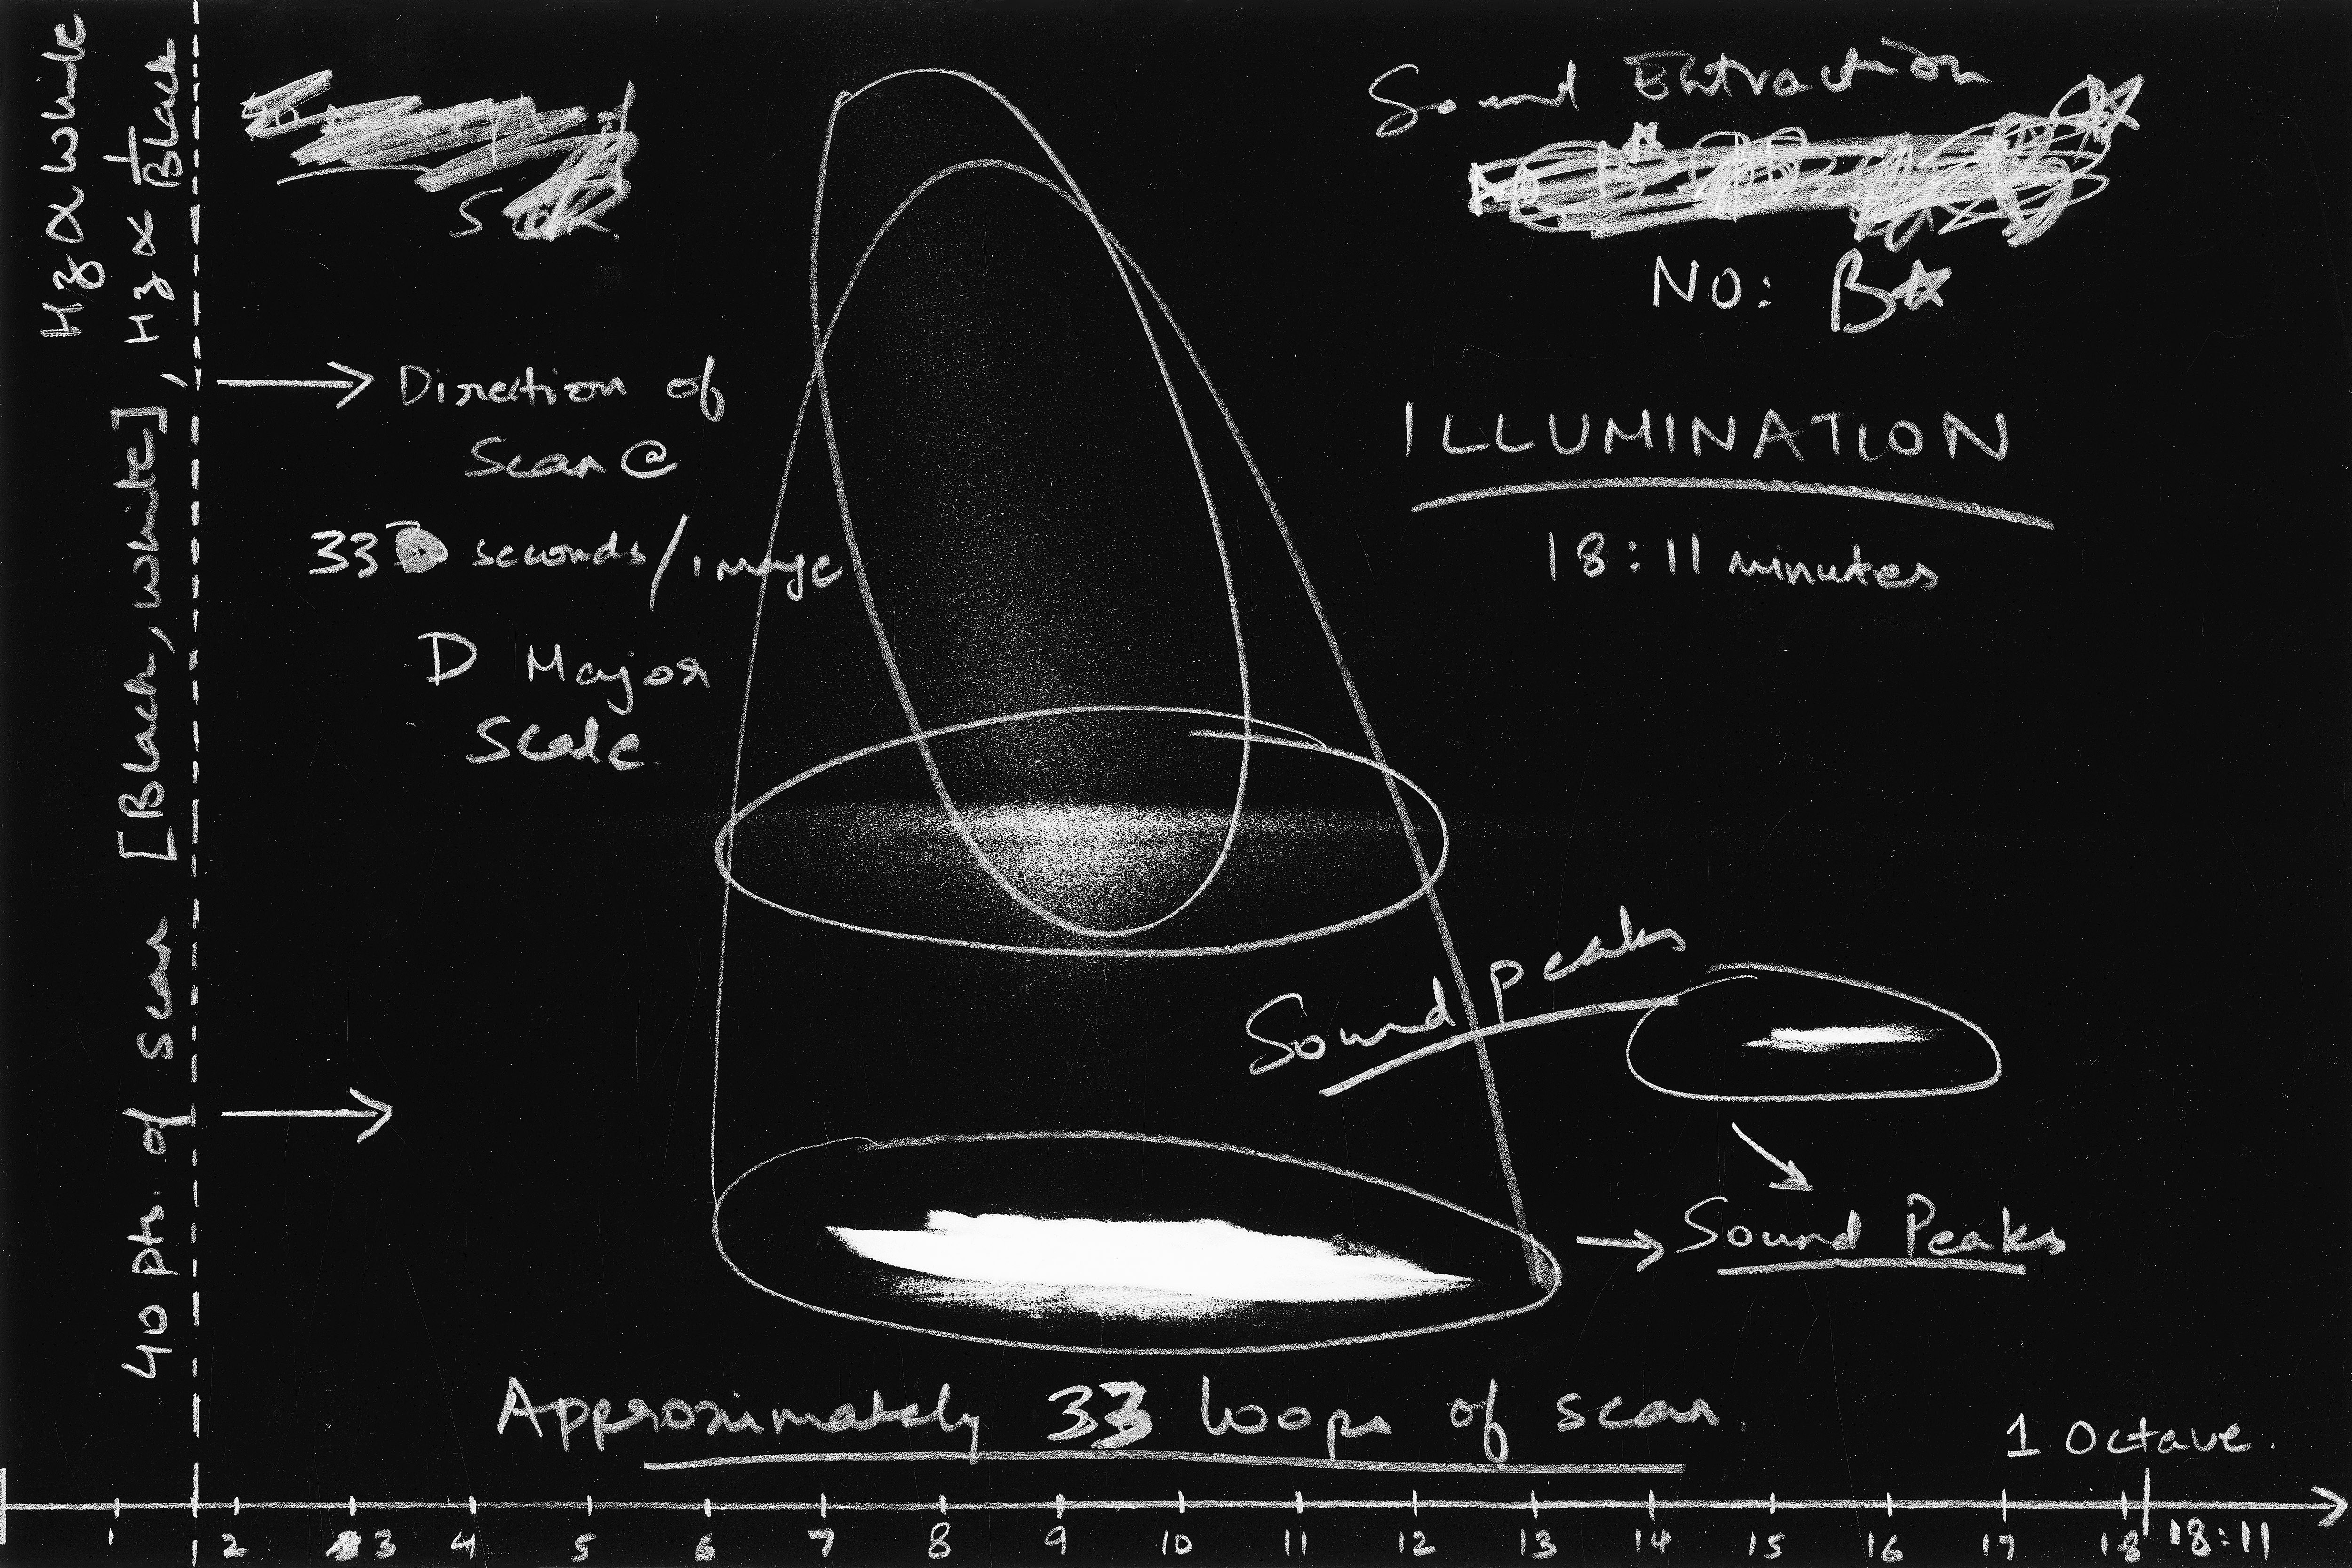 Hz ∝ White
40 pts. of scan [Black, White], Hz ∝ 1/Black
Direction of
Scan @
33 seconds/image
D Major
Scale
Sound Extraction
NO: B☆
ILLUMINATION
18:11 minutes
Sound peaks
Sound Peaks
Approximately 33 loops of scan.
1 Octave.
1 2 3 4 5 6 7 8 9 10 11 12 13 14 15 16 17 18 18:11